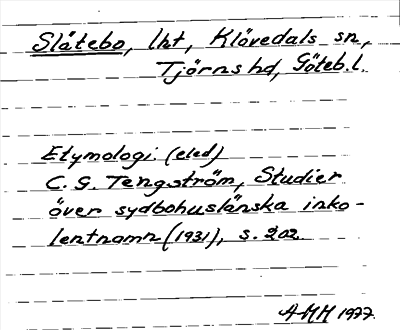 Slätebo, lht, Klövedals sn,
Tjörns hd, Göteb.l.
Etymologi (eled)
C. G. Tengström, Studier
över sydbohuslänska inko-
lentnamn (1931), s. 202
AMH 1977.